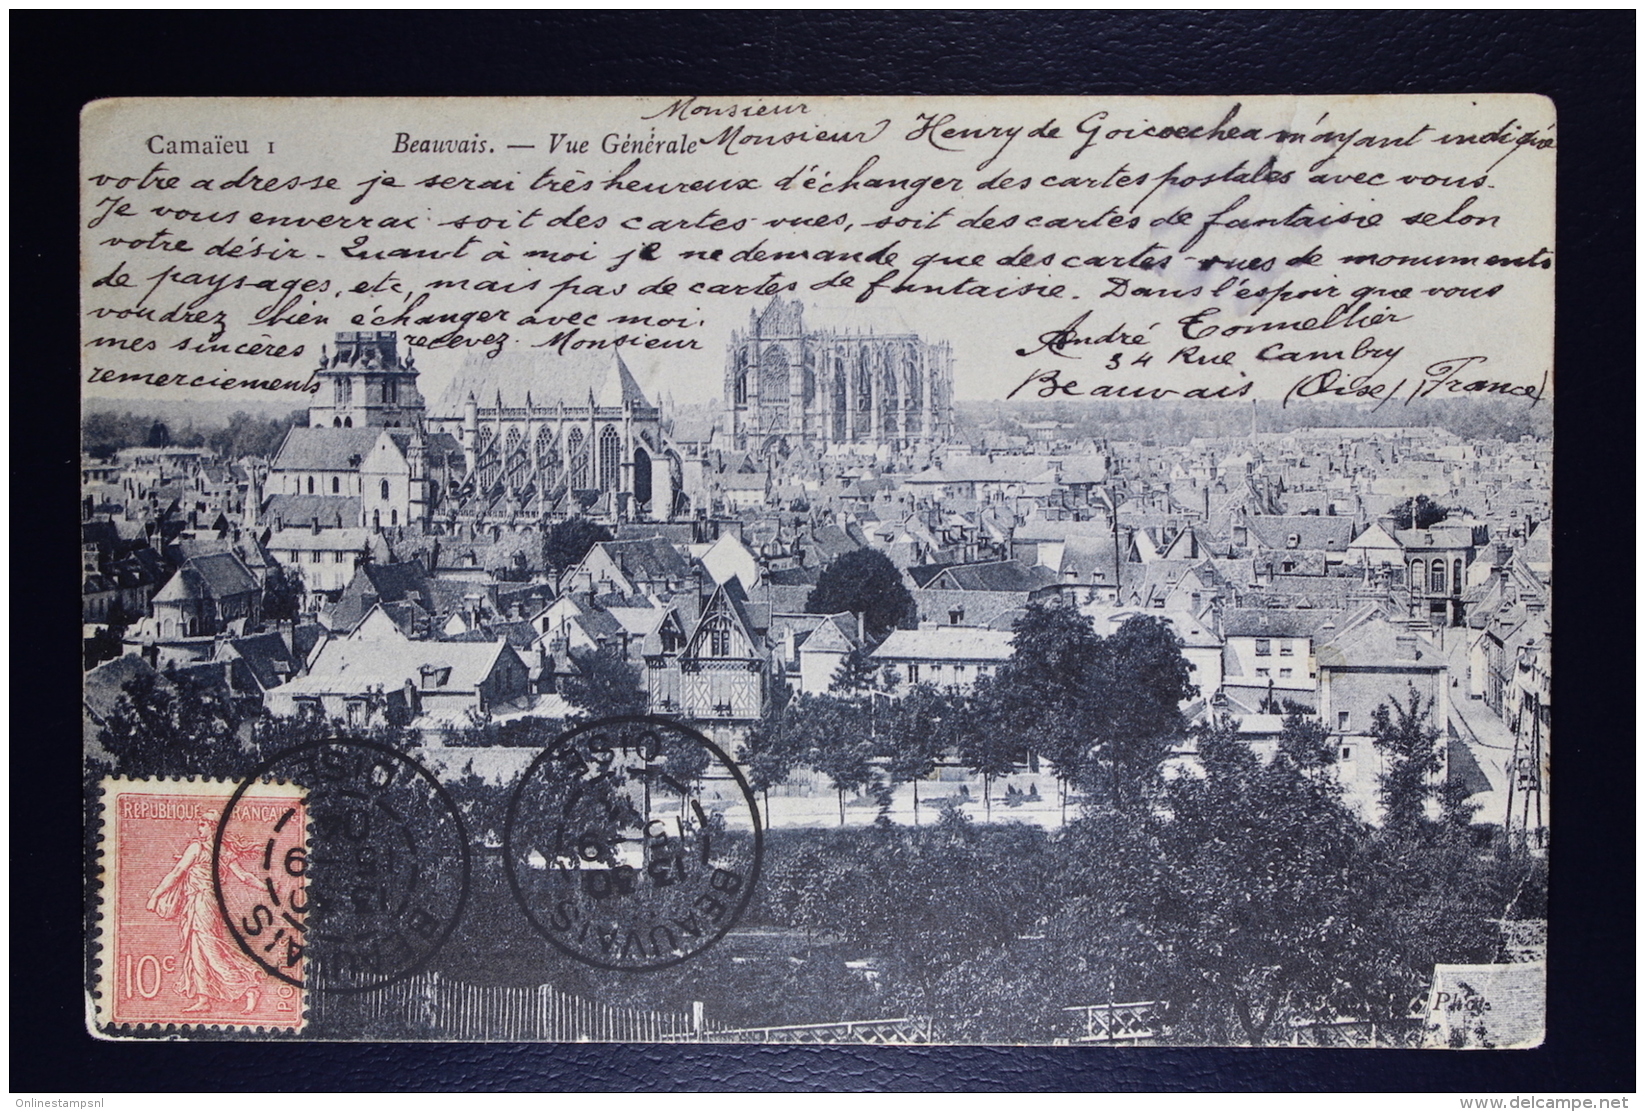 Camaïeu 1
Beauvais. — Vue Générale
Monsieur
Monsieur Henry de Goicoechea m'ayant indiqué
votre adresse je serai très heureux d'échanger des cartes postales avec vous.
Je vous enverrai soit des cartes-vues, soit des cartes de fantaisie selon
votre désir. Quant à moi je ne demande que des cartes-vues de monuments
de paysages, etc, mais pas de cartes de fantaisie. Dans l'espoir que vous
voudrez bien échanger avec moi.
recevez Monsieur
mes sincères
remerciements
André Tonnellier
34 Rue Cambry
Beauvais (Oise) (France)
REPUBLIQUE FRANÇAISE
10c
BEAUVAIS
OISE
13 30
15
BEAUVAIS
OISE
13 30
15
Phot.
Onlinestampsnl
www.delcampe.net